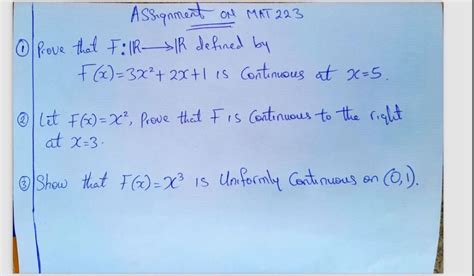 ASSignment ON MAT 223
① Prove that F: ℝ → ℝ defined by
F(x) = 3x² + 2x + 1 is Continuous at x = 5.
② Let F(x) = x², Prove that F is Continuous to the right
at x = 3.
③ Show that F(x) = x³ is Uniformly Continuous on (0,1).